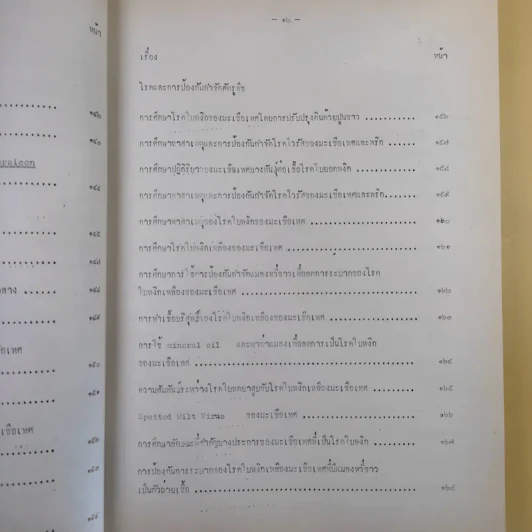 หน้า
๑๔๒
๑๔๓
๑๔๔
๑๔๕
๑๔๗
๑๔๘
๑๔๙
๑๕๐
๑๕๑
๑๕๒
- ๑๖ -
เรื่อง หน้า
โรคและการป้องกันกำจัดศัตรูพืช
การศึกษาโรคใบหงิกของมะเขือเทศโดยการปรับปรุงดินด้วยปูนขาว ............ ๑๕๖
การศึกษาหาสาเหตุและการป้องกันกำจัดโรคไวรัสของมะเขือเทศและพริก ...... ๑๕๗
การศึกษาปฏิกิริยาของมะเขือเทศบางพันธุ์ต่อเชื้อโรคใบยอดหงิก ............
การศึกษาหาสาเหตุและการป้องกันกำจัดโรคไวรัสของมะเขือเทศและพริก....... ๑๕๙
การศึกษาหาสาเหตุของโรคใบหงิกของมะเขือเทศ ........................ ๑๖๐
การศึกษาโรคใบหงิกเหลืองของมะเขือเทศ ............................. ๑๖๑
การศึกษาการใช้สารป้องกันกำจัดแมลงหวี่ขาวเพื่อลดการระบาดของโรค
ใบหงิกเหลืองของมะเขือเทศ ........................................ ๑๖๒
การทำเชื้อบริสุทธิ์ของโรคใบหงิกเหลืองของมะเขือเทศ ................... ๑๖๓
การใช้ mineral oil และยาฆ่าแมลงเพื่อลดการเป็นโรคใบหงิก
ของมะเขือเทศ .................................................. ๑๖๔
ความสัมพันธ์ระหว่างโรคใบหดยาสูบกับโรคใบหงิกเหลืองมะเขือเทศ ......... ๑๖๕
Spotted Wilt Virus ของมะเขือเทศ ................................ ๑๖๖
การศึกษาลักษณะที่สำคัญบางประการของมะเขือเทศที่เป็นโรคใบหงิก ......... ๑๖๗
การป้องกันการระบาดของโรคใบหงิกเหลืองมะเขือเทศที่มีแมลงหวี่ขาว
เป็นตัวถ่ายเชื้อ .................................................. ๑๖๘